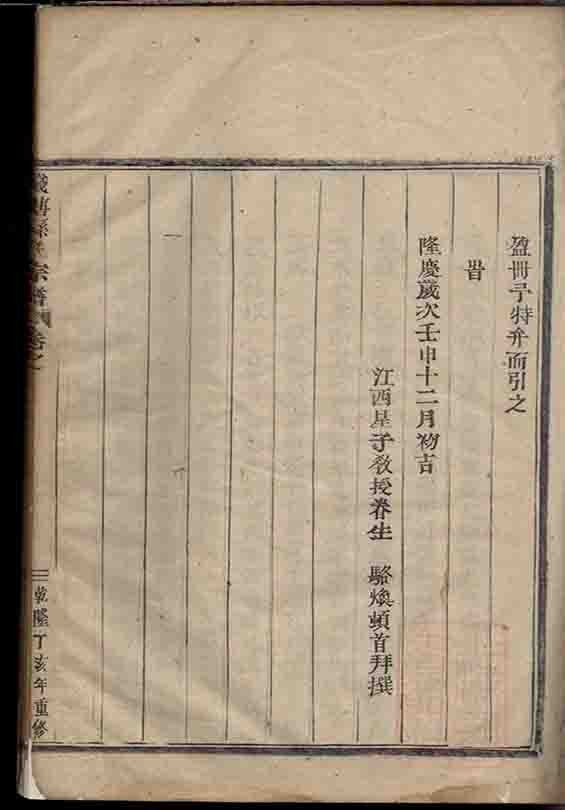 盈冊予特弁而引之
旹
隆慶歲次壬申十二月初吉
江西星子教授眷生　駱煥頓首拜撰
孫氏宗譜　卷之
乾隆丁亥年重修